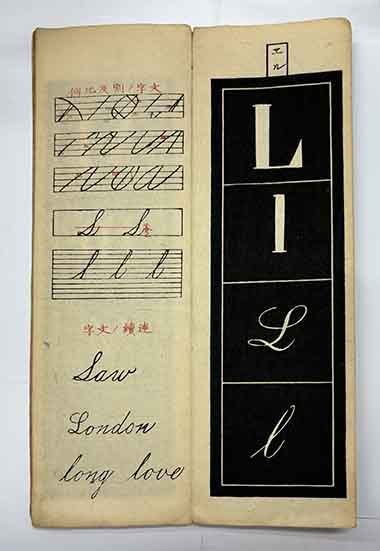 文字ノ割及比例
l l l
連續ノ文字
Saw
London
long love
エル
L
l
L
l